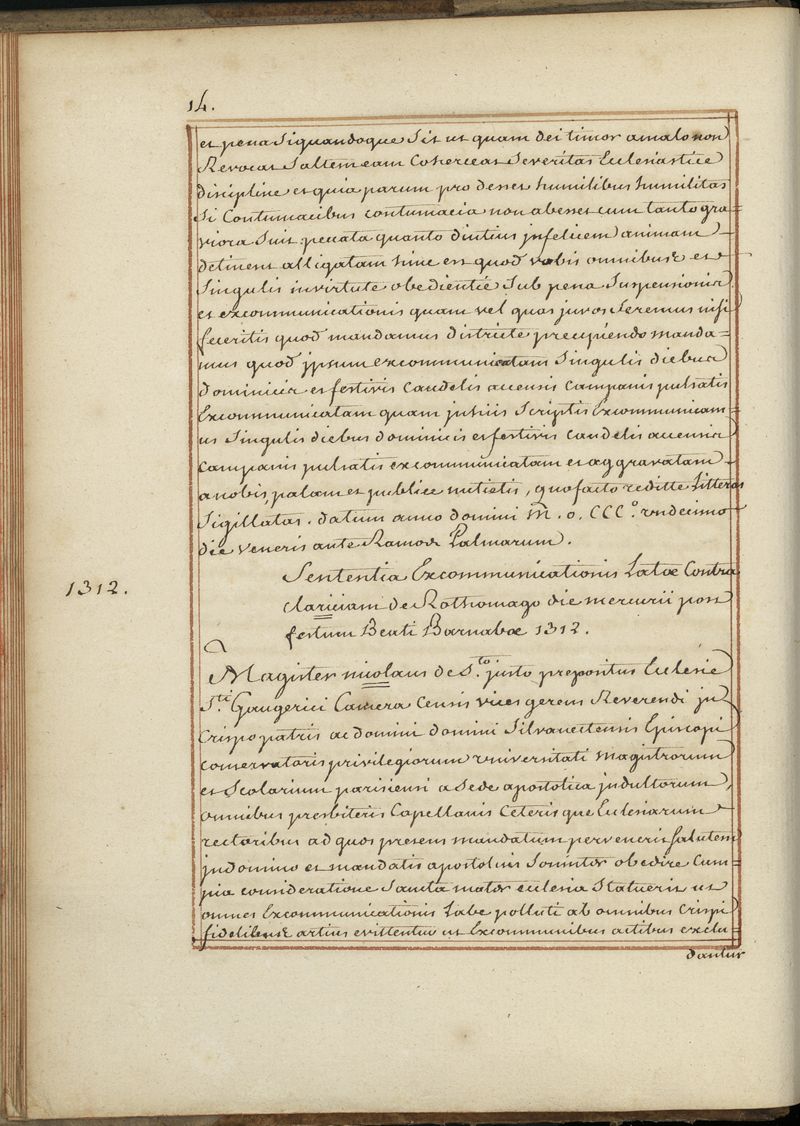 14.
et pena siquandoque sit ut quam dei timor a malo non
Revocat saltem eam Coherceat severitas Ecclesiastice
discipline et quia parum pro desset humilibus humilitas
si Contumacibus contumacia non abesset cum tanto gra=
viora suit peccata quanto diutius jnfelicem animam
detinent alligatam hinc est quod vobis omnibus et
singulis in virtute obedientie sub pena suspensionis
et excommunicationis quam vel quas juvos feremus nisi
feceritis quod mandamus districte precipiendo manda=
mus quod jpsum excommunicatam singulis diebus
dominicis et festivis candelis accensis campanis pulsatis
Excommunicatam quam jnhiis scriptis Excommunicam=
us singulis diebus dominicis et festivis candelis accensis
campanis pulsatis excommunicatam et aggravatam
a nobis, palam et publice nutietis, quo facto reditte litteras
sigillatas. datum anno domini M. o. CCC.° undecimo
die veneris ante Ramos Palmarum.
1312.
Sententia Excommunicationis Latæ Contra
clariciam de Rothomago die mercurii post
festum Beati Barnabæ 1312.
Magister nicolaus de S.to justo prepositus Ecclesie
S.ti Gaugerici Camera censis vices gerens Reverendi jn
Crispo patris ac domini domini Silvanectensis Episcopi
conservatoris privilegiorum universitati Magistrorum
et Scolarium parisiensi a Sede apostolica jndultorum,
omnibus presbiteris Capellanis Ceterisque Ecclesiarum
rectoribus ad quos presens mandatum pervenerit salutem
jn domino et mandatis apostolicis firmiter obedire Cum=
pia consideratione sancta mater ecclesia statuerit ut
omnes Excommunicationis Labe polluti ab omnibus Crispi
fidelibus artius evittentur ut Excommunibus actibus exclu=
dantur